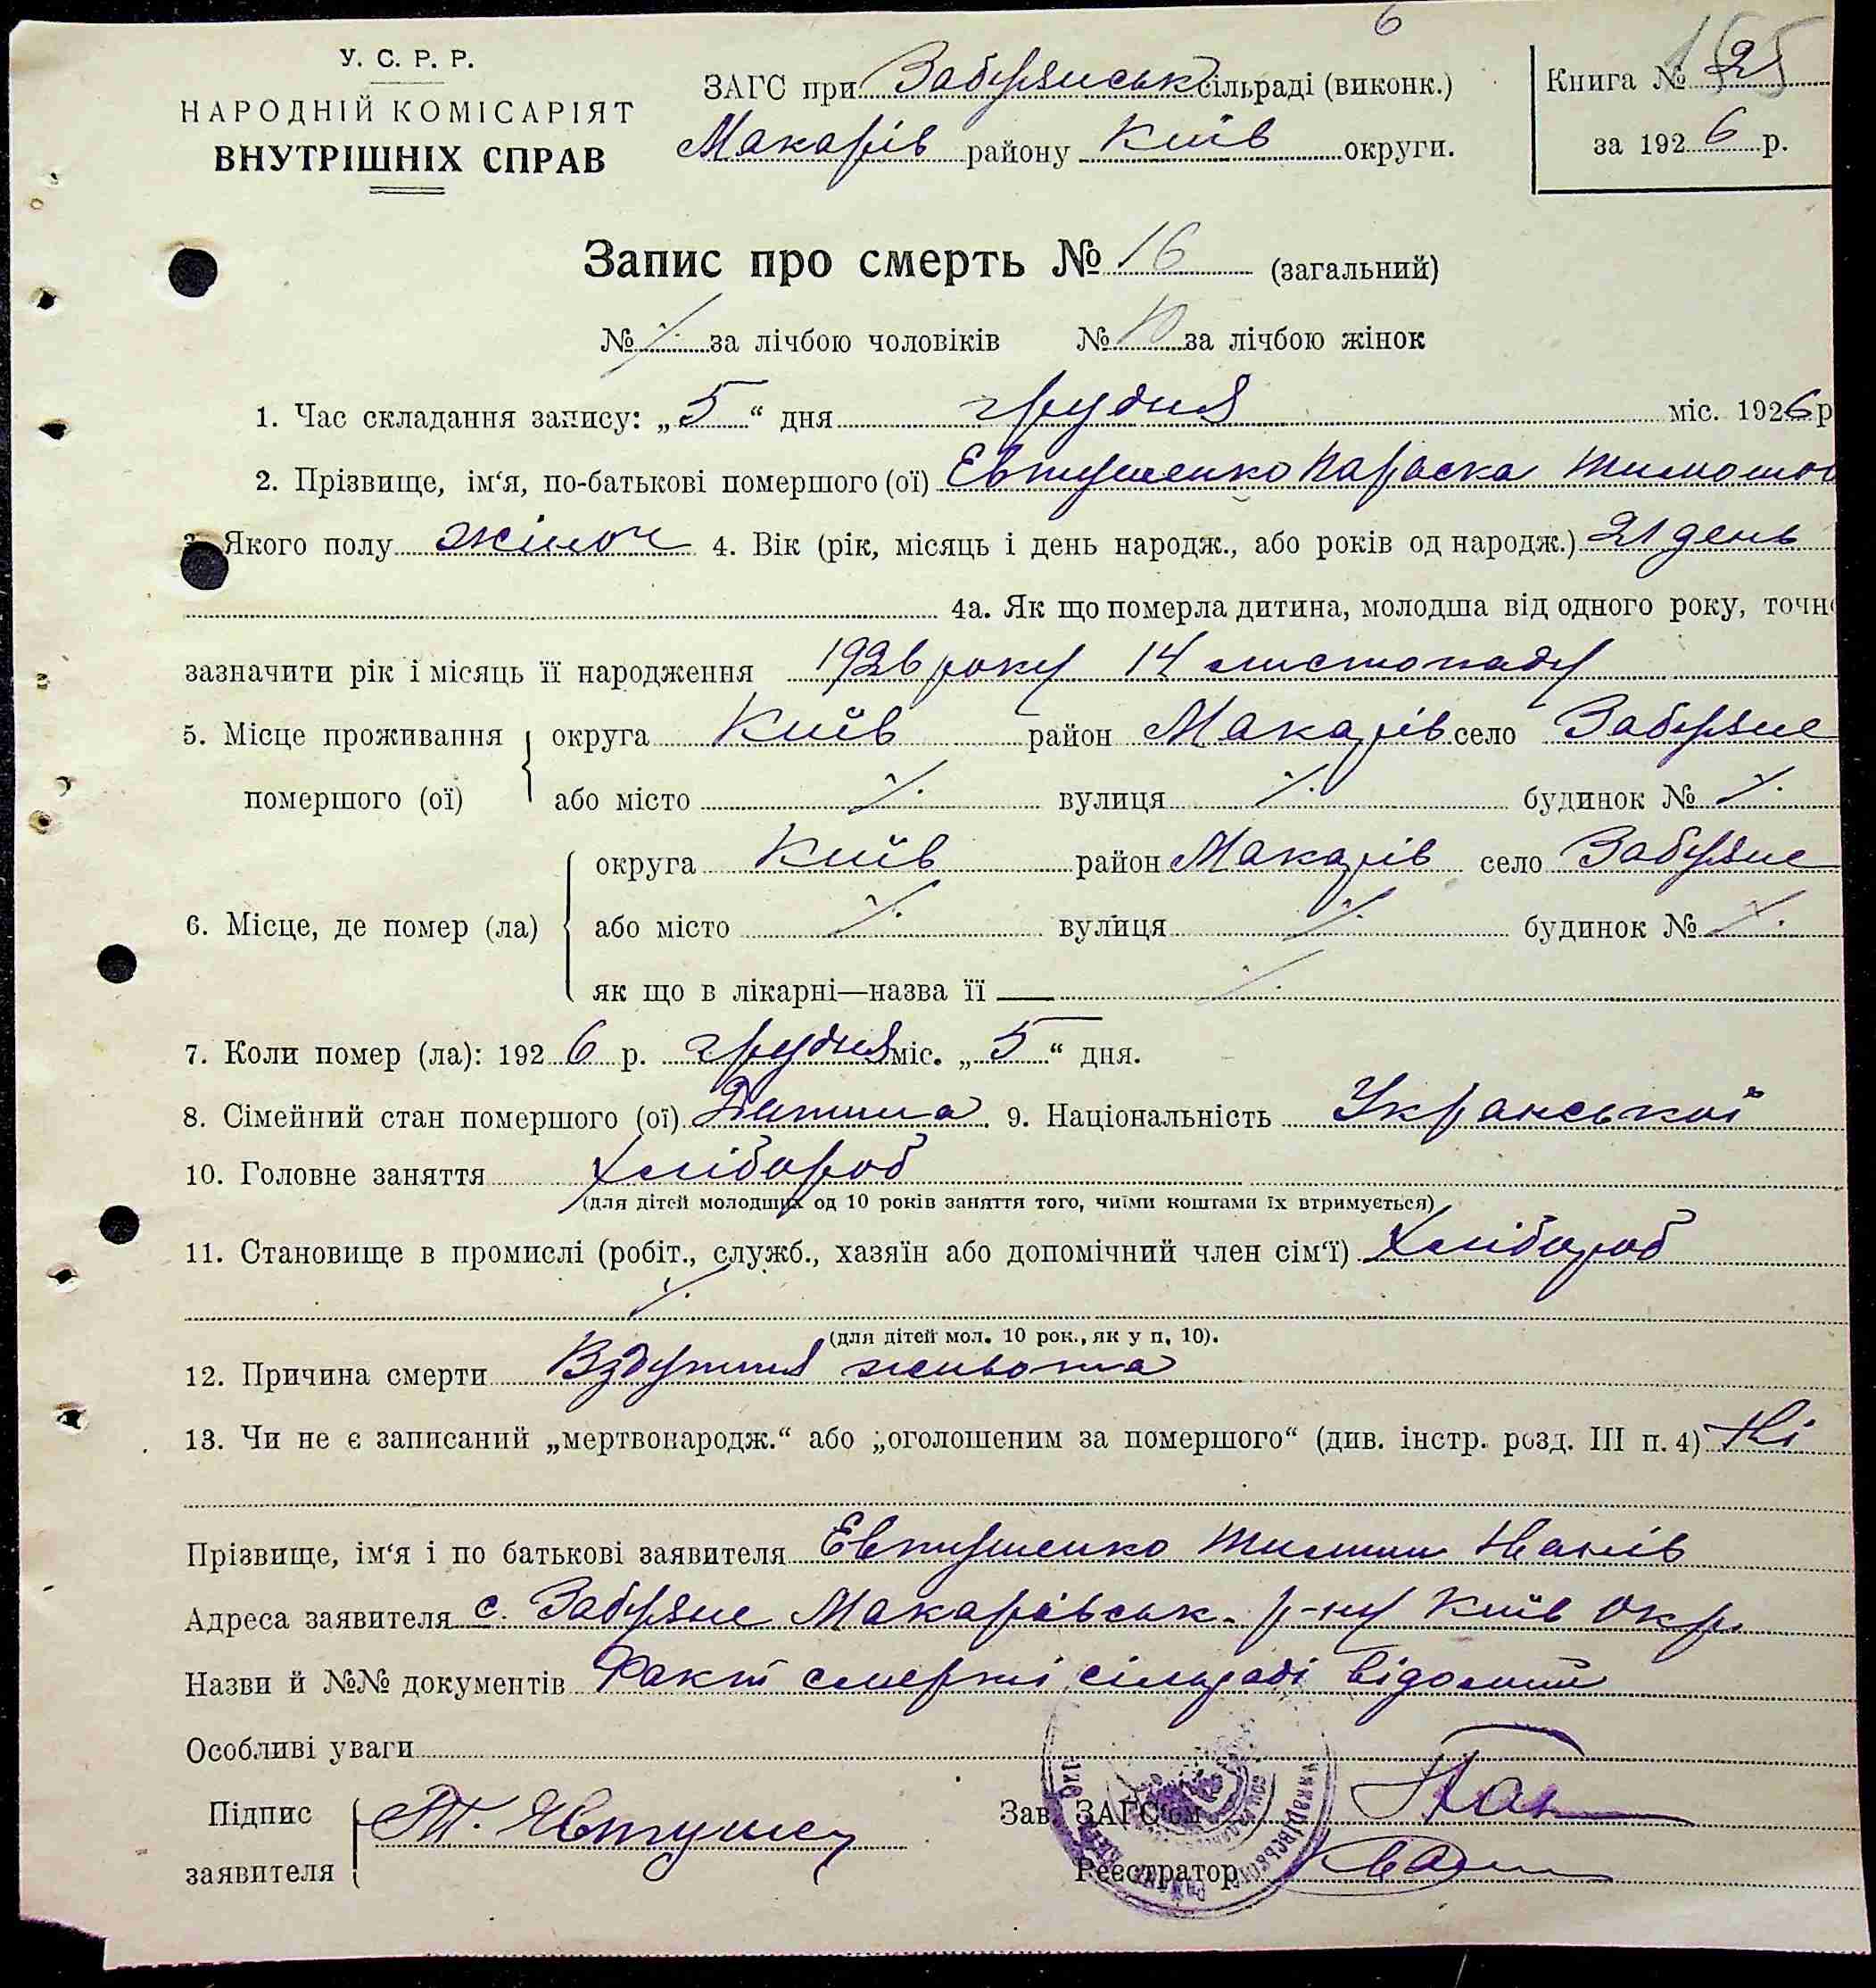 6
У. С. Р. Р.
НАРОДНІЙ КОМІСАРІЯТ
ВНУТРІШНІХ СПРАВ
ЗАГС при Забуянськ сільраді (виконк.)
Макарів району Київ округи.
Книга № 2
за 1926 р.
Запис про смерть № 16 (загальний)
№ ⁒ за лічбою чоловіків № 10 за лічбою жінок
1. Час складання запису: „5“ дня грудня міс. 1926 р
2. Прізвище, ім‘я, по-батькові помершого (ої) Евтушенко Параска Тимошов
3. Якого полу жіноч 4. Вік (рік, місяць і день народж., або років од народж.) 21 день
4а. Як що померла дитина, молодша від одного року, точн
зазначити рік і місяць її народження 1926 року 14 листопаду
5. Місце проживання округа Київ район Макарів село Забуяне
помершого (ої) або місто ⁒ вулиця ⁒ будинок № ⁒
округа Київ район Макарів село Забуяне
6. Місце, де помер (ла) або місто ⁒ вулиця ⁒ будинок № ⁒
як що в лікарні—назва її ⁒
7. Коли помер (ла): 1926 р. грудня міс. „5“ дня.
8. Сімейний стан помершого (ої) Дитина. 9. Національність Укранської
10. Головне заняття Хлібороб
(для дітей молодших од 10 років заняття того, чиїми коштами їх втримується)
11. Становище в промислі (робіт., служб., хазяїн або допомічний член сім‘ї) Хлібороб
⁒
(для дітей мол. 10 рок., як у п. 10).
12. Причина смерти Вздуття живота
13. Чи не є записаний „мертвонародж.“ або „оголошеним за помершого“ (див. інстр. розд. III п. 4) Ні
Прізвище, ім‘я і по батькові заявителя Евтушенко Тимиш Іванів
Адреса заявителя с. Забуяне Макарівськ. р-ну Київ Окр.
Назви й №№ документів Факт смерті сільраді відомий
Особливі уваги
Підпис Т. Явтушен Зав. ЗАГС‘ом
заявителя Реєстратор